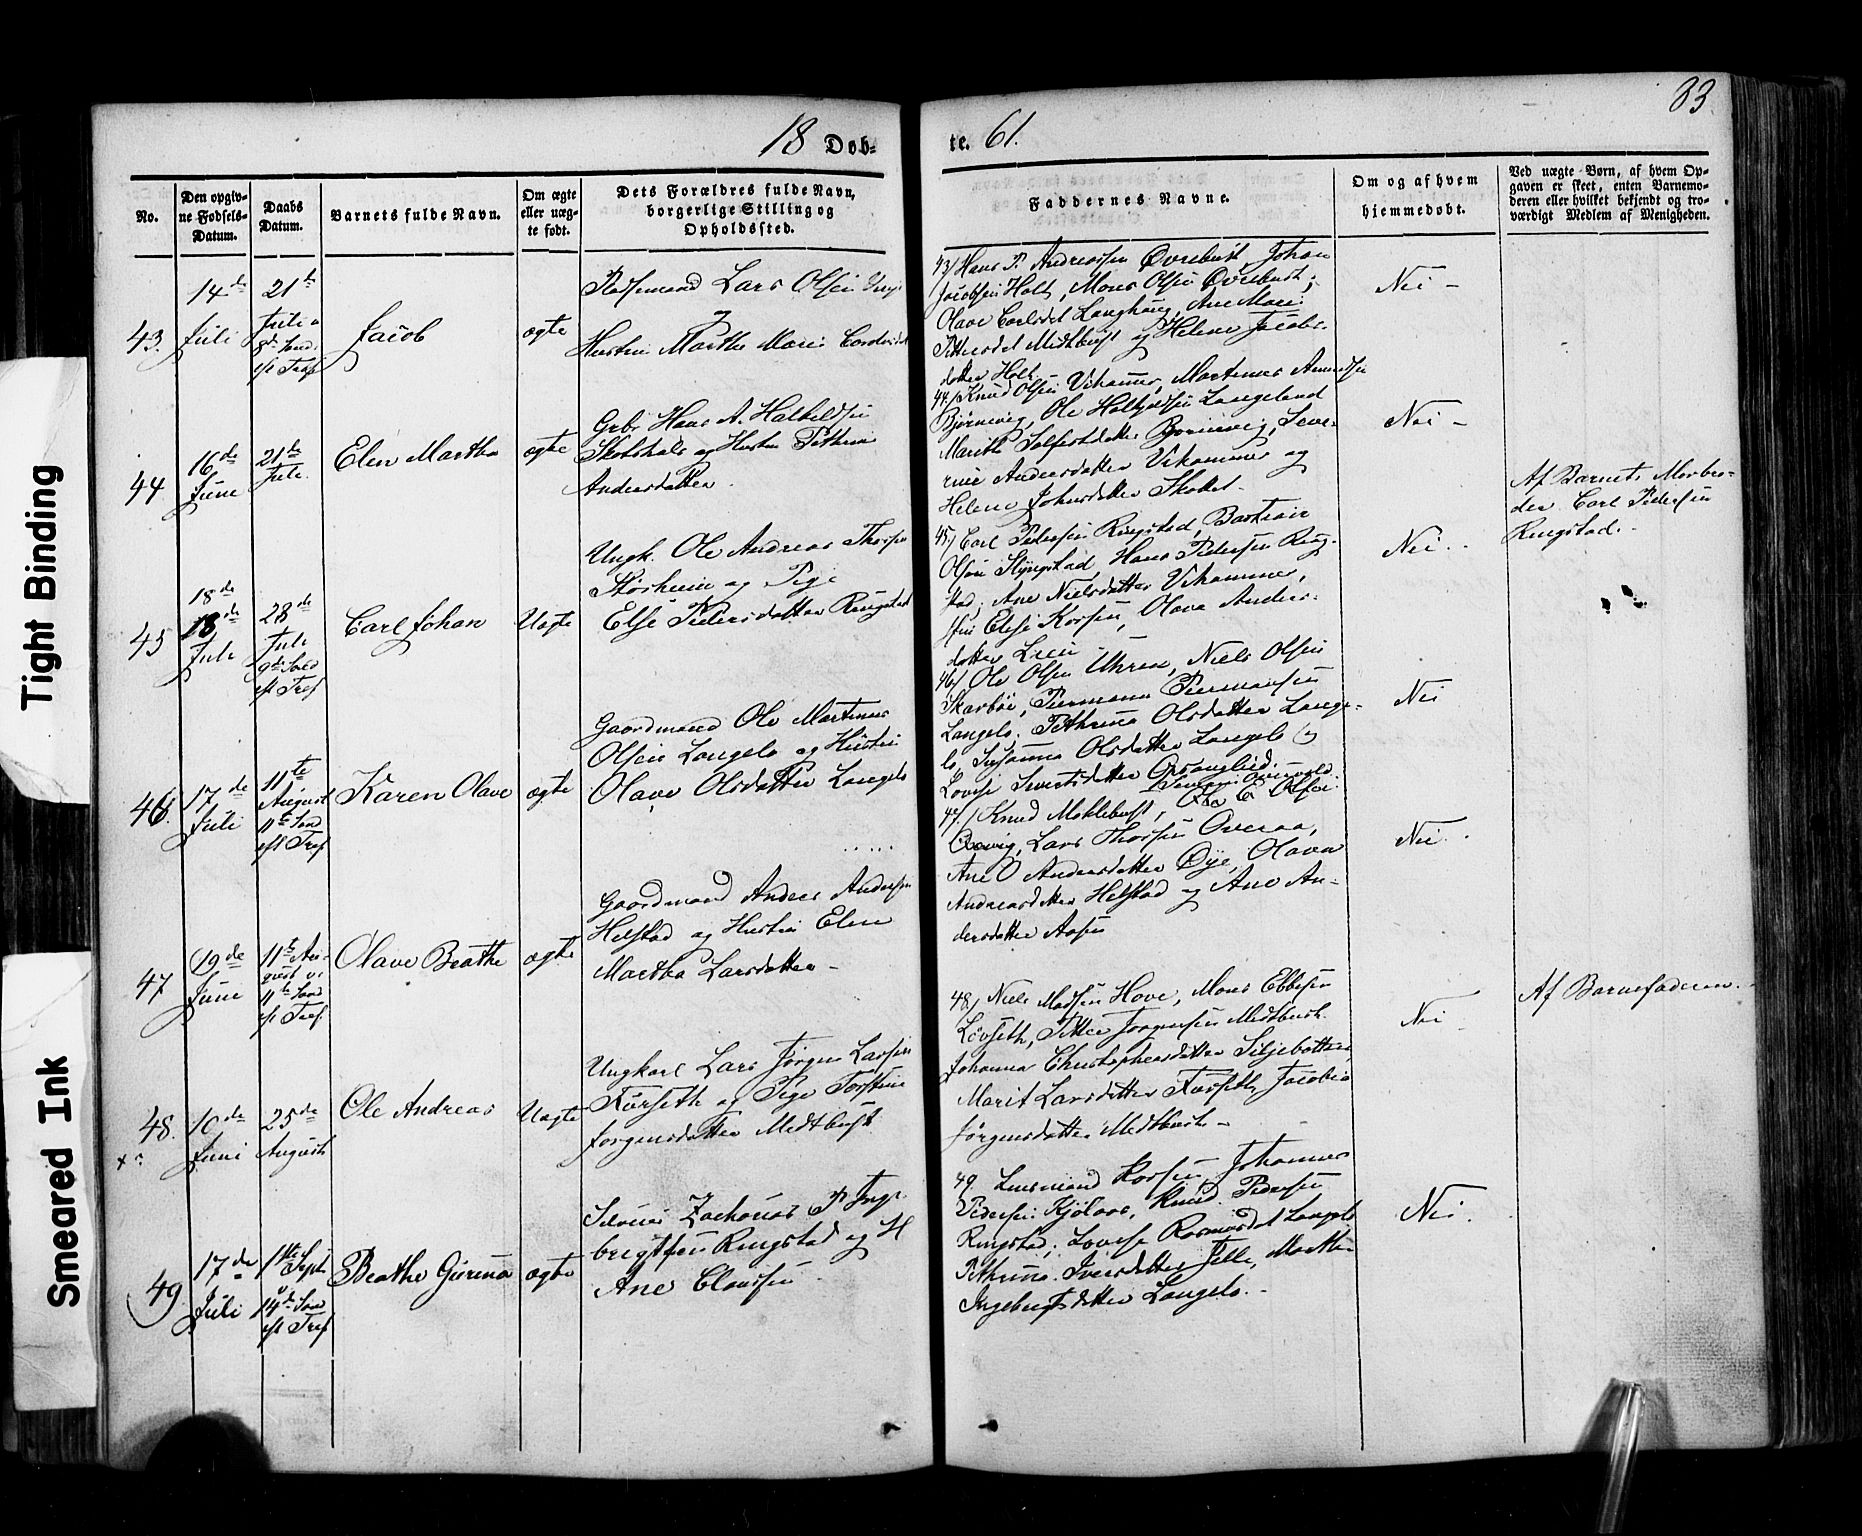 83.
18 Døb-
te. 61.
No.
Den opgiv-
ne Fødsels-
Datum.
Daabs
Datum.
Barnets fulde Navn.
Om ægte
eller uæg-
te født.
Dets Forældres fulde Navn,
borgerlige Stilling og
Opholdssted.
Faddernes Navne.
Om og af hvem
hjemmedøbt.
Ved uægte Børn, af hvem Op-
gaven er skeet, enten Barnemo-
deren eller hvilket bekjendt og tro-
værdigt Medlem af Menigheden.
43.
14de
Juli
21de
Juli
8de Sønd.
eft Tref
Jacob
ægte
Pladsemand Lars Olsen
Hustru Marthe Marie
43/ Hans P. Andreassen Øvrebust, Johan
Jacobsen Holt, Mons Olsen Øvrebust;
Olave Carlsdt Langhaug, Ane Marie
Pettersdt Medtbust og Helene Jacobs-
datter Holt.
Nei -
44
16de
June
21de
Juli
Elen Martha
ægte
Grbr Hans A. Halkeldsen
og Hustru Pethrine
Andersdatter.
44/ Knud Olsen Vikamer, Martinus Amundsen
Bjørnevig, Ole Langeland
Marith datter Bjørnevig, Seve-
rine Andersdatter Vikammer og
Helene Johnsdatter
Nei -
45
18de
18de
Juli
28de
Juli
9de Sønd
eft Tref
Carl Johan
Uægte
Ungk. Ole Andreas
og Pige
Else Pedersdatter Ringstad
45/ Carl Pedersen Ringstad, Bastian
Olsen Ringstad, Hans Pedersen Ring-
stad; Ane Nielsdatter Vikammer,
Korsen, Olava Anders-
datter Lien
Nei.
Af Barnets Morbro-
der Carl Pedersen
Ringstad.
46.
17de
Juli
11te
August
11te Sønd
eft Tref
Karen Olave
ægte
Gaardmand Ole Martinus
Olsen Langelo og Hustru
Olave Olsdatter Langelo
46/ Ole Olsen Uhren, Niels Olsen
Skarbøe,
Langelo. Pethrina Olsdatter Lange-
lo, Susanna Olsdatter Langelo og
Lovise Sivertsdatter
Nei
47
19de
June
11te Au-
gust
11te Sønd
eft Tref
Olave Beathe
ægte
Gaardmand Anders Andersen
Helstad og Hustru Elen
Martha Larsdatter -
47/ Knud Moklebust, Ole E. Olsen
Lars Thorsen Overaa,
Ane O Andersdatter Dye, Olava
Andreasdatter Helstad og Ane An-
dersdatter Aasen
Nei.
48.
10de
Juni
25de
August
Ole Andreas
Uægte
Ungkarl Lars Jørgen Larsen
Furseth og Pige
Jørgensdatter Medtbust
48/ Niels Madsen Hove, Mons Ebbesen
Løvseth, Petter Jørgensen Medtbust.
Johanna Christophersdatter Siljebotten
Marit Larsdatter Furseth, Jacobia
Jørgensdatter Medtbust -
Nei
Af Barnefaderen.
49
17de
Juli
1ste Sept
14de Sønd
eft Tref
Beathe Gurina
ægte
Zacharias P Inge
brigtsen Ringstad og H
Ane Clausen
49. Korsen, Johannes
Pedersen Kjølaas, Knud Pedersen
Ringstad; Lovise Rasmusdat Langelo
Pethrina Iversdatter Marthe
Ingebrigtsdatter Langelo. -
Nei.
Tight Binding
Smeared Ink